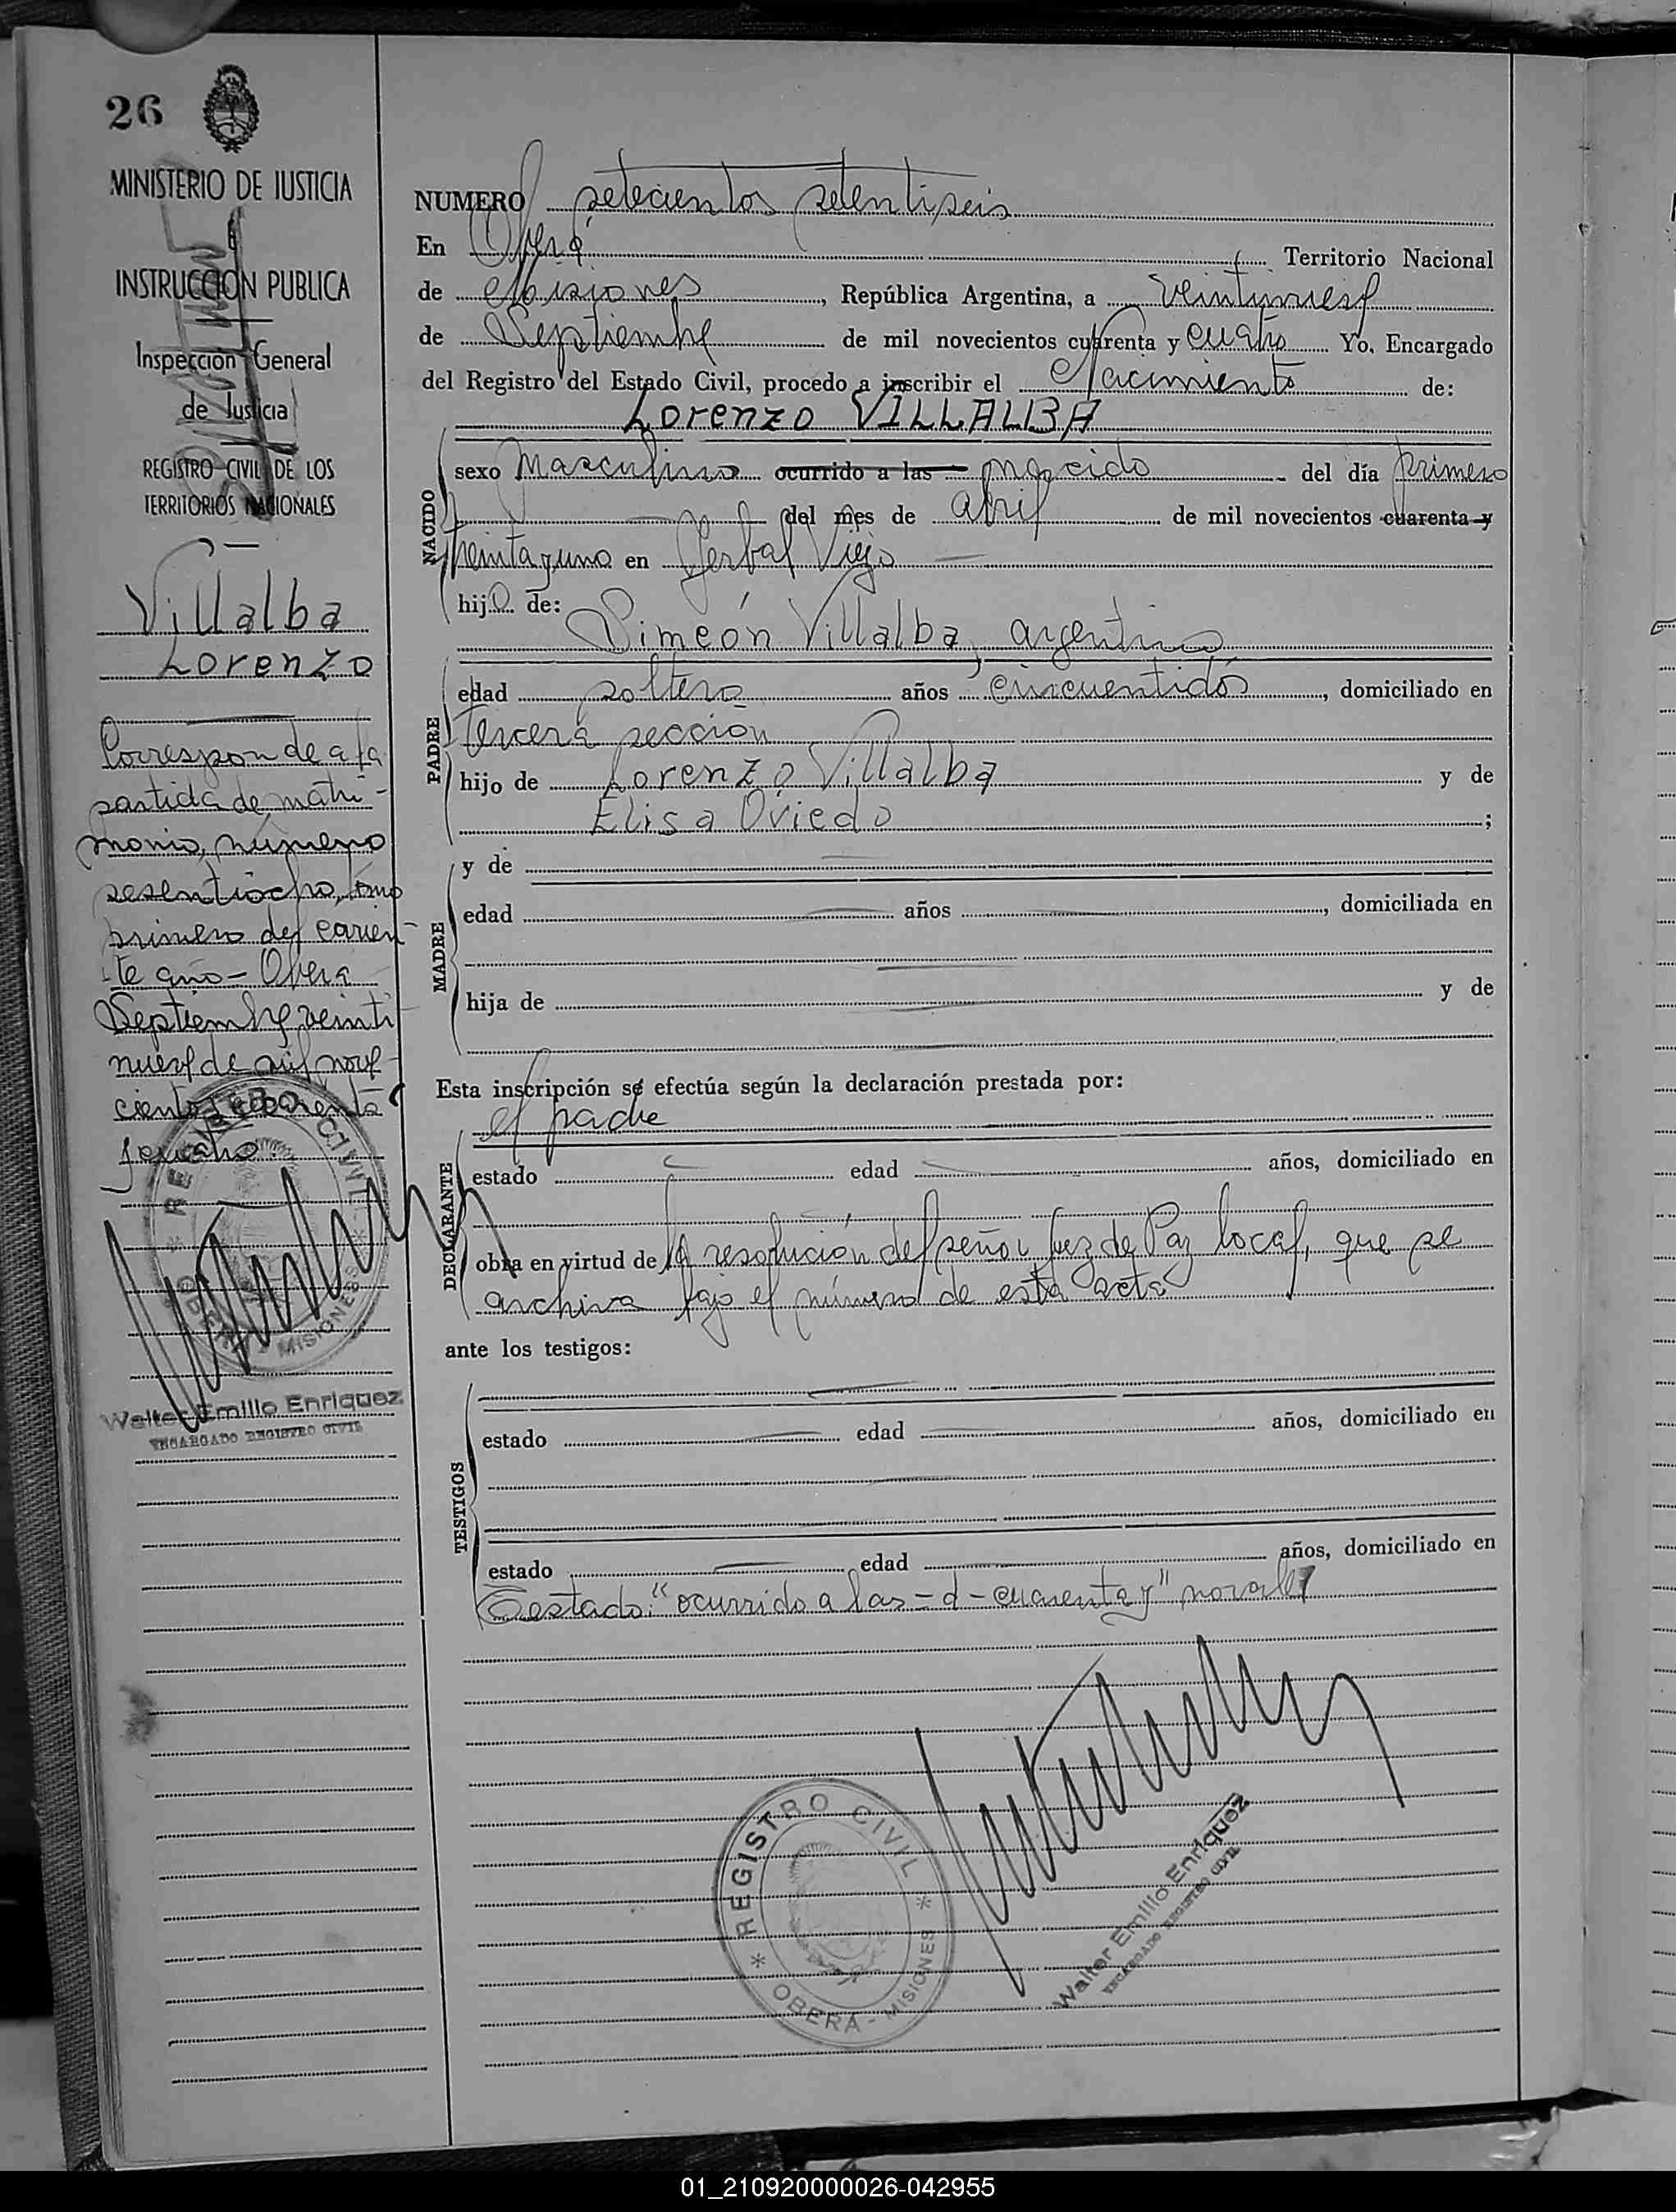 26
MINISTERIO DE JUSTICIA
E
INSTRUCCION PUBLICA
Inspección General
de Justicia
REGISTRO CIVIL DE LOS
TERRITORIOS NACIONALES
Villalba
Lorenzo
Corresponde a la
partida de matri-
monio, número
sesentiocho, tomo
primero del corrien-
te año - Oberá
Septiembre veinti
nueve de mil nove
cientos cuarenta
y cuatro.
REGISTRO CIVIL
OBERA - MISIONES
Walter Emilio Enriquez
ENCARGADO REGISTRO CIVIL
NUMERO setecientos setentiseis
En Oberá Territorio Nacional
de Misiones, República Argentina, a veintinueve
de Septiembre de mil novecientos cuarenta y cuatro Yo, Encargado
del Registro del Estado Civil, procedo a inscribir el Nacimiento de:
Lorenzo VILLALBA
NACIDO
sexo Masculino ocurrido a las nacido del día primero
del mes de abril de mil novecientos cuarenta y
treinta y uno en Yerbal Viejo
hijo de:
Simeón Villalba, argentino
PADRE
edad soltero años cincuentidós, domiciliado en
Tercera sección
hijo de Lorenzo Villalba y de
Elisa Oviedo ;
MADRE
y de
edad años , domiciliada en
hija de y de
Esta inscripción se efectúa según la declaración prestada por:
el padre
DECLARANTE
estado edad años, domiciliado en
obra en virtud de la resolución del señor Juez de Paz local, que se
archiva bajo el número de esta acta
ante los testigos:
TESTIGOS
estado edad años, domiciliado en
estado edad años, domiciliado en
Testado: "ocurrido a las - d - cuarenta y" no vale
REGISTRO CIVIL
OBERA - MISIONES
Walter Emilio Enriquez
ENCARGADO REGISTRO CIVIL
01_210920000026-042955